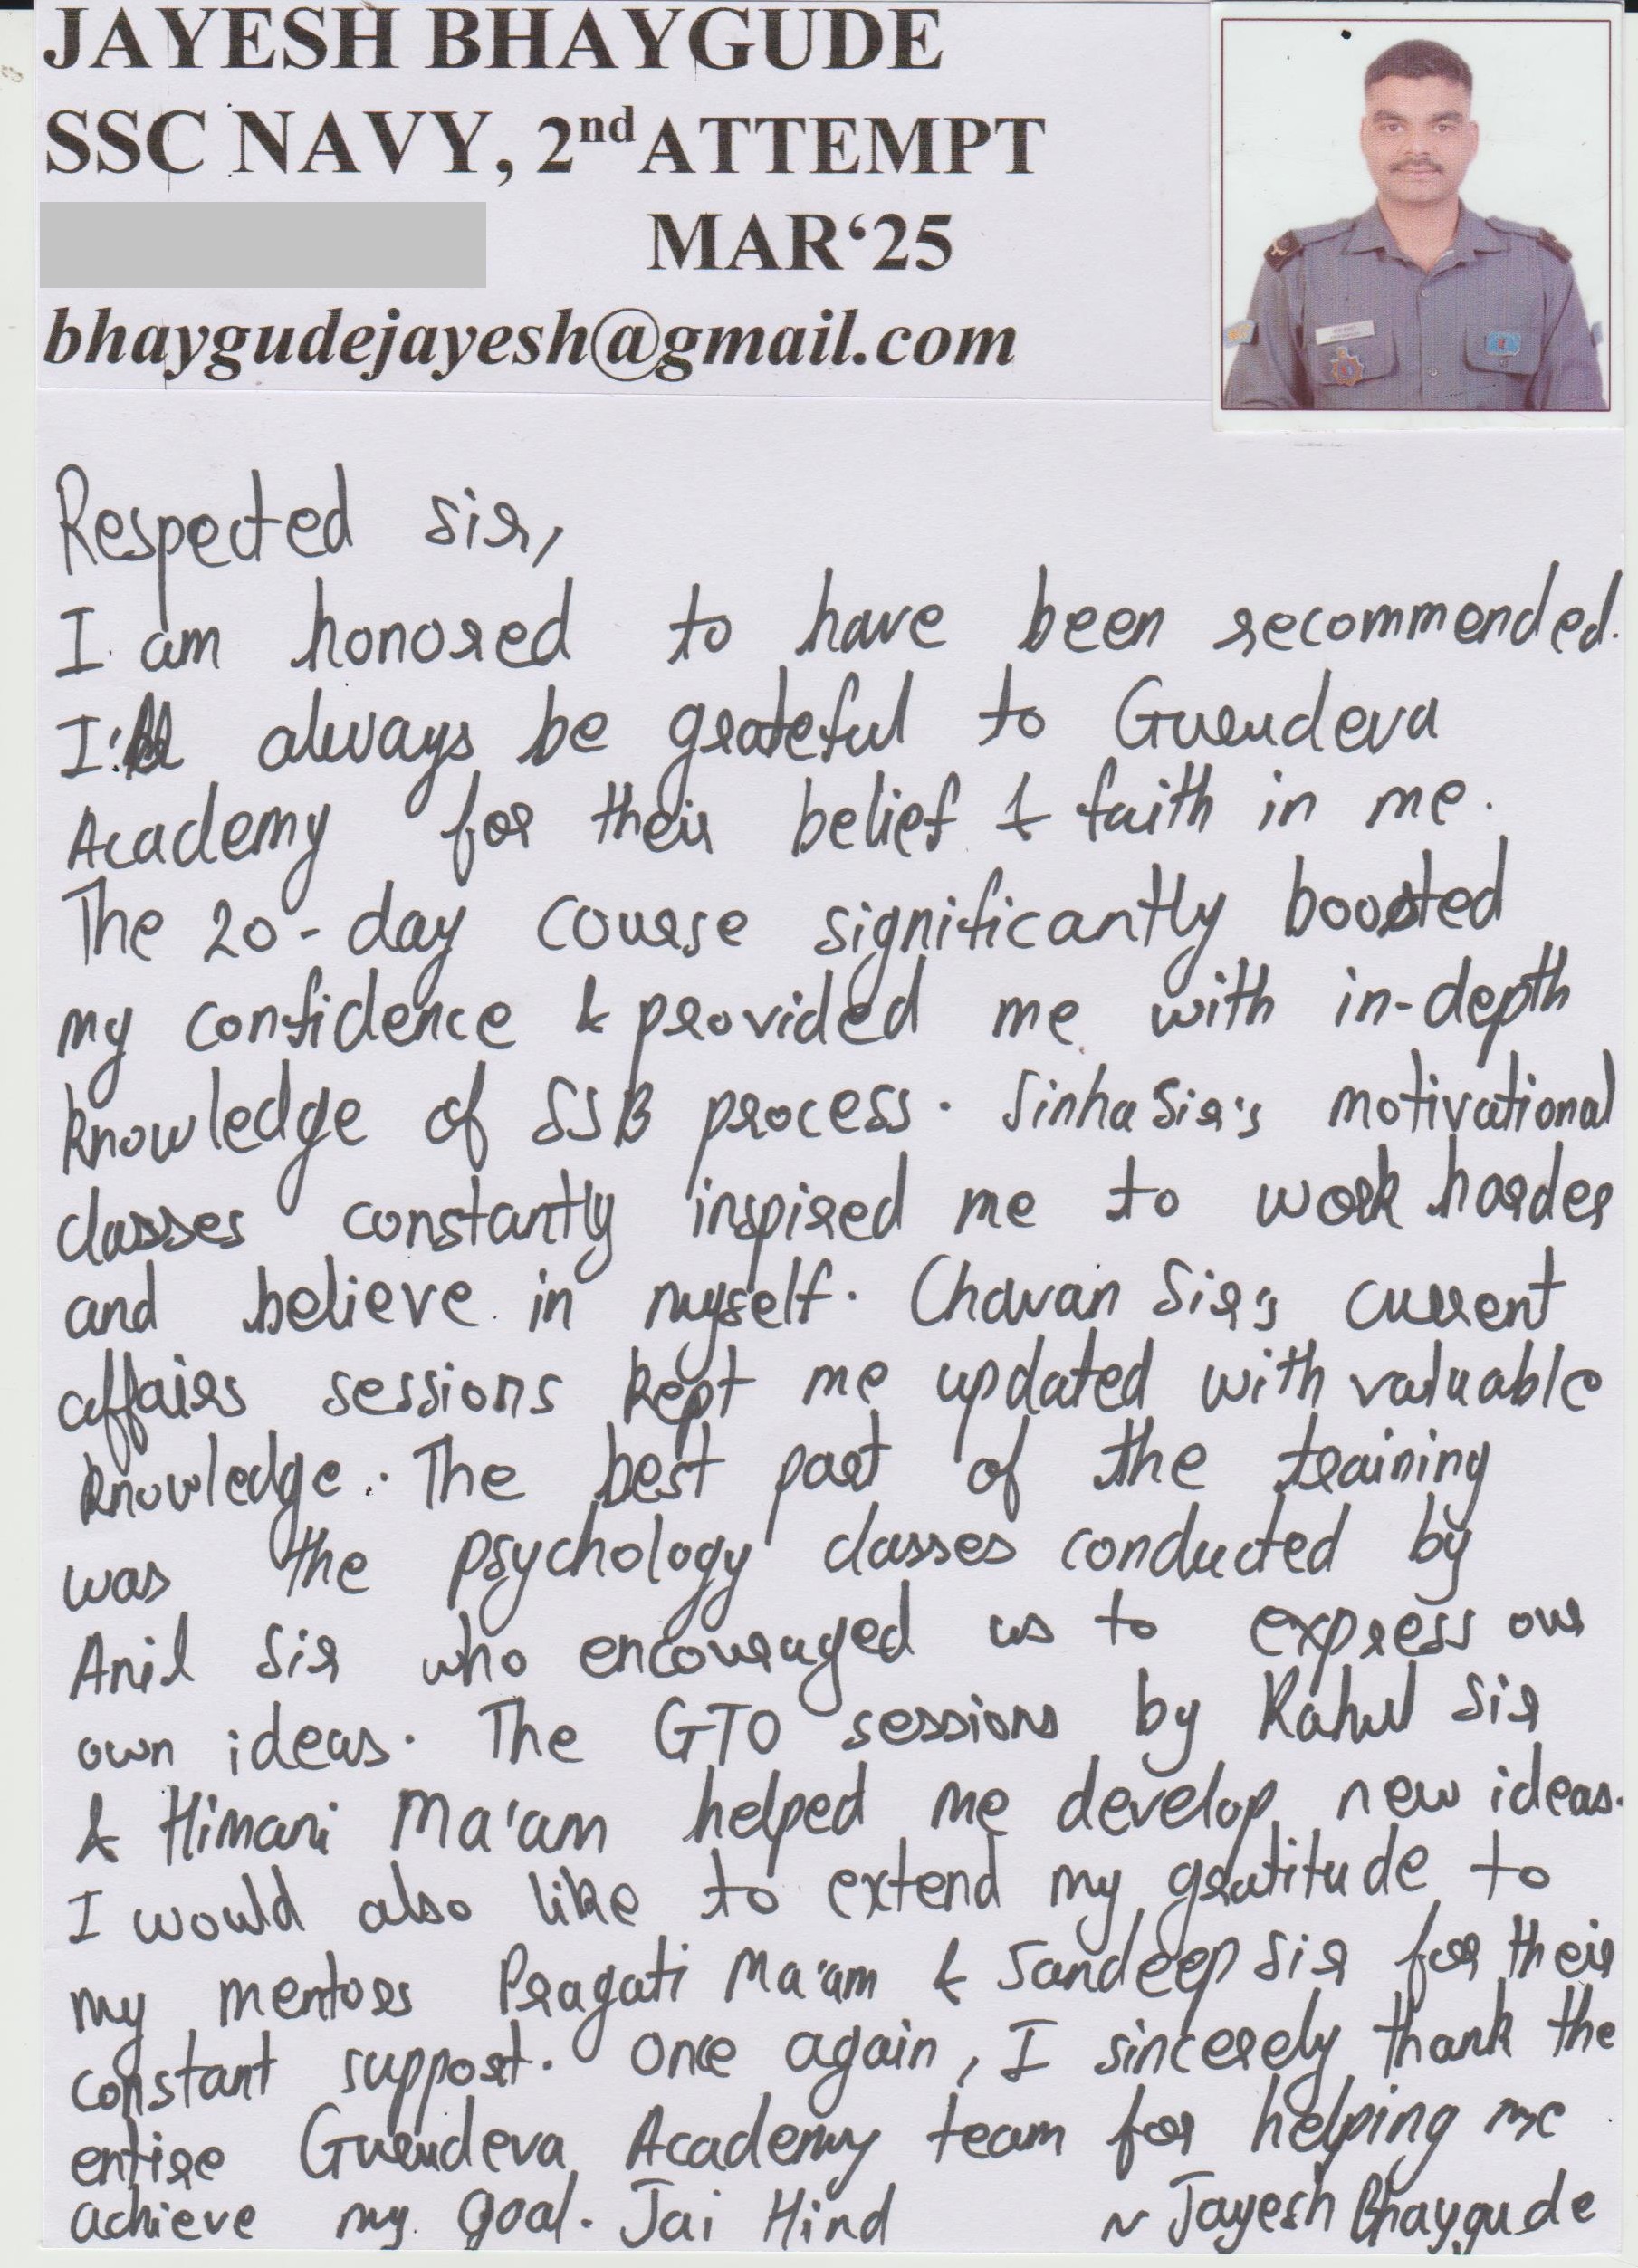 JAYESH BHAYGUDE
SSC NAVY, 2nd ATTEMPT
MAR‘25
bhaygudejayesh@gmail.com
Respected Sir,
I am honored to have been recommended.
I'll always be grateful to Gurudeva
Academy for their belief & faith in me.
The 20-day course significantly boosted
my confidence & provided me with in-depth
knowledge of SSB process. Sinha Sir's motivational
classes constantly inspired me to work harder
and believe in myself. Chavan Sir's current
affairs sessions kept me updated with valuable
knowledge. The best part of the training
was the psychology classes conducted by
Anil Sir who encouraged us to express our
own ideas. The GTO sessions by Rahul Sir
& Himani Ma'am helped me develop new ideas.
I would also like to extend my gratitude to
my mentors Pragati Ma'am & Sandeep Sir for their
constant support. Once again, I sincerely thank the
entire Gurudeva Academy team for helping me
achieve my goal. Jai Hind ~ Jayesh Bhaygude